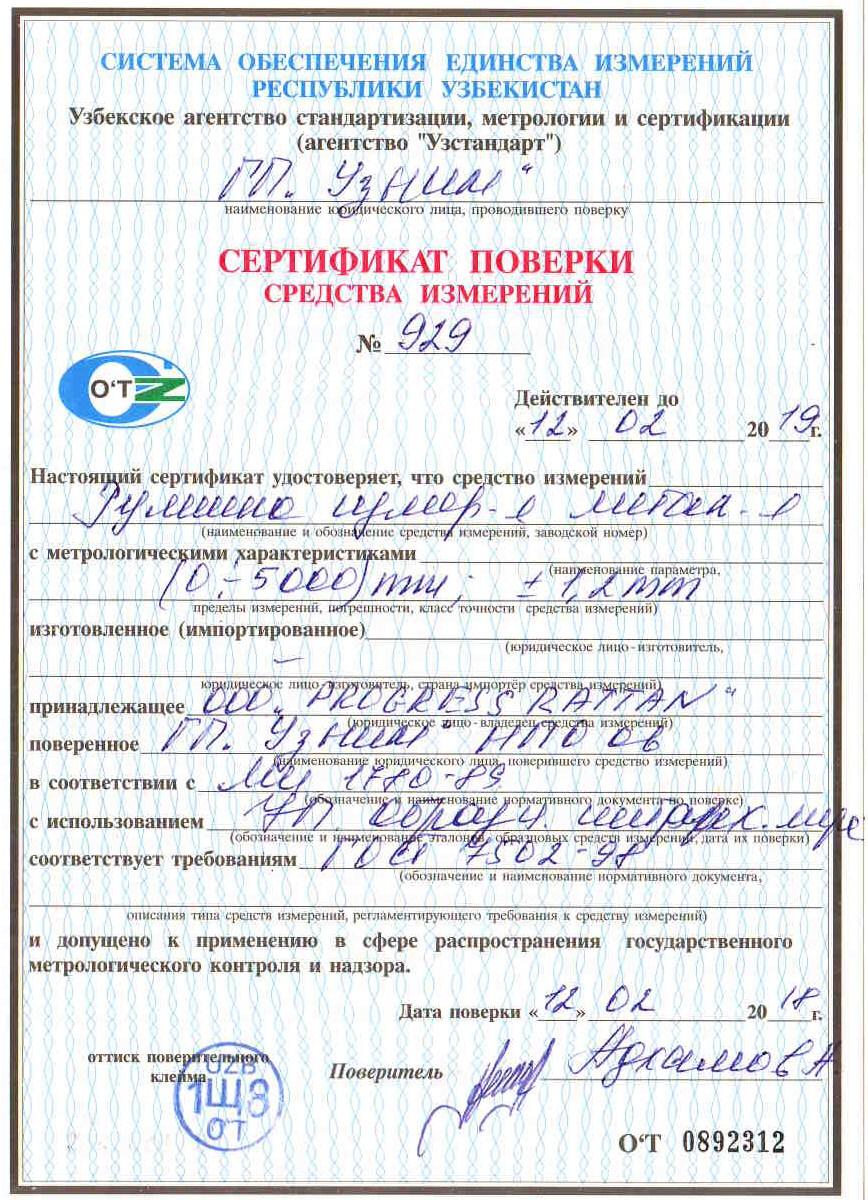 СИСТЕМА ОБЕСПЕЧЕНИЯ ЕДИНСТВА ИЗМЕРЕНИЙ
РЕСПУБЛИКИ УЗБЕКИСТАН
Узбекское агентство стандартизации, метрологии и сертификации
(агентство "Узстандарт")
ГП. „УзНИМ“
наименование юридического лица, проводившего поверку
СЕРТИФИКАТ ПОВЕРКИ
СРЕДСТВА ИЗМЕРЕНИЙ
№ 929
O‘T
Действителен до
«12» 02 2019г.
Настоящий сертификат удостоверяет, что средство измерений
(наименование и обозначение средства измерений, заводской номер)
с метрологическими характеристиками
(наименование параметра,
(0÷5000)mm; ±1,2mm
пределы измерений, погрешности, класс точности средства измерений)
изготовленное (импортированное)
(юридическое лицо-изготовитель,
—
юридическое лицо-изготовитель, страна импортёр средства измерений)
принадлежащее ООО „PROGRESS RATTAN“
(юридическое лицо-владелец средства измерений)
поверенное ГП. „УзНИМ“ НПО ов
(наименование юридического лица, поверившего средство измерений)
в соответствии с МИ 1780-89
(обозначение и наименование нормативного документа по поверке)
с использованием
(обозначение и наименование эталонов, образцовых средств измерений, дата их поверки)
соответствует требованиям ГОСТ 7502-98
(обозначение и наименование нормативного документа,
описания типа средств измерений, регламентирующего требования к средству измерений)
и допущено к применению в сфере распространения государственного
метрологического контроля и надзора.
Дата поверки «12» 02 2018г.
оттиск поверительного
клейма
UZB
1Ш8
O‘T
Поверитель Адхамов А
O‘T 0892312